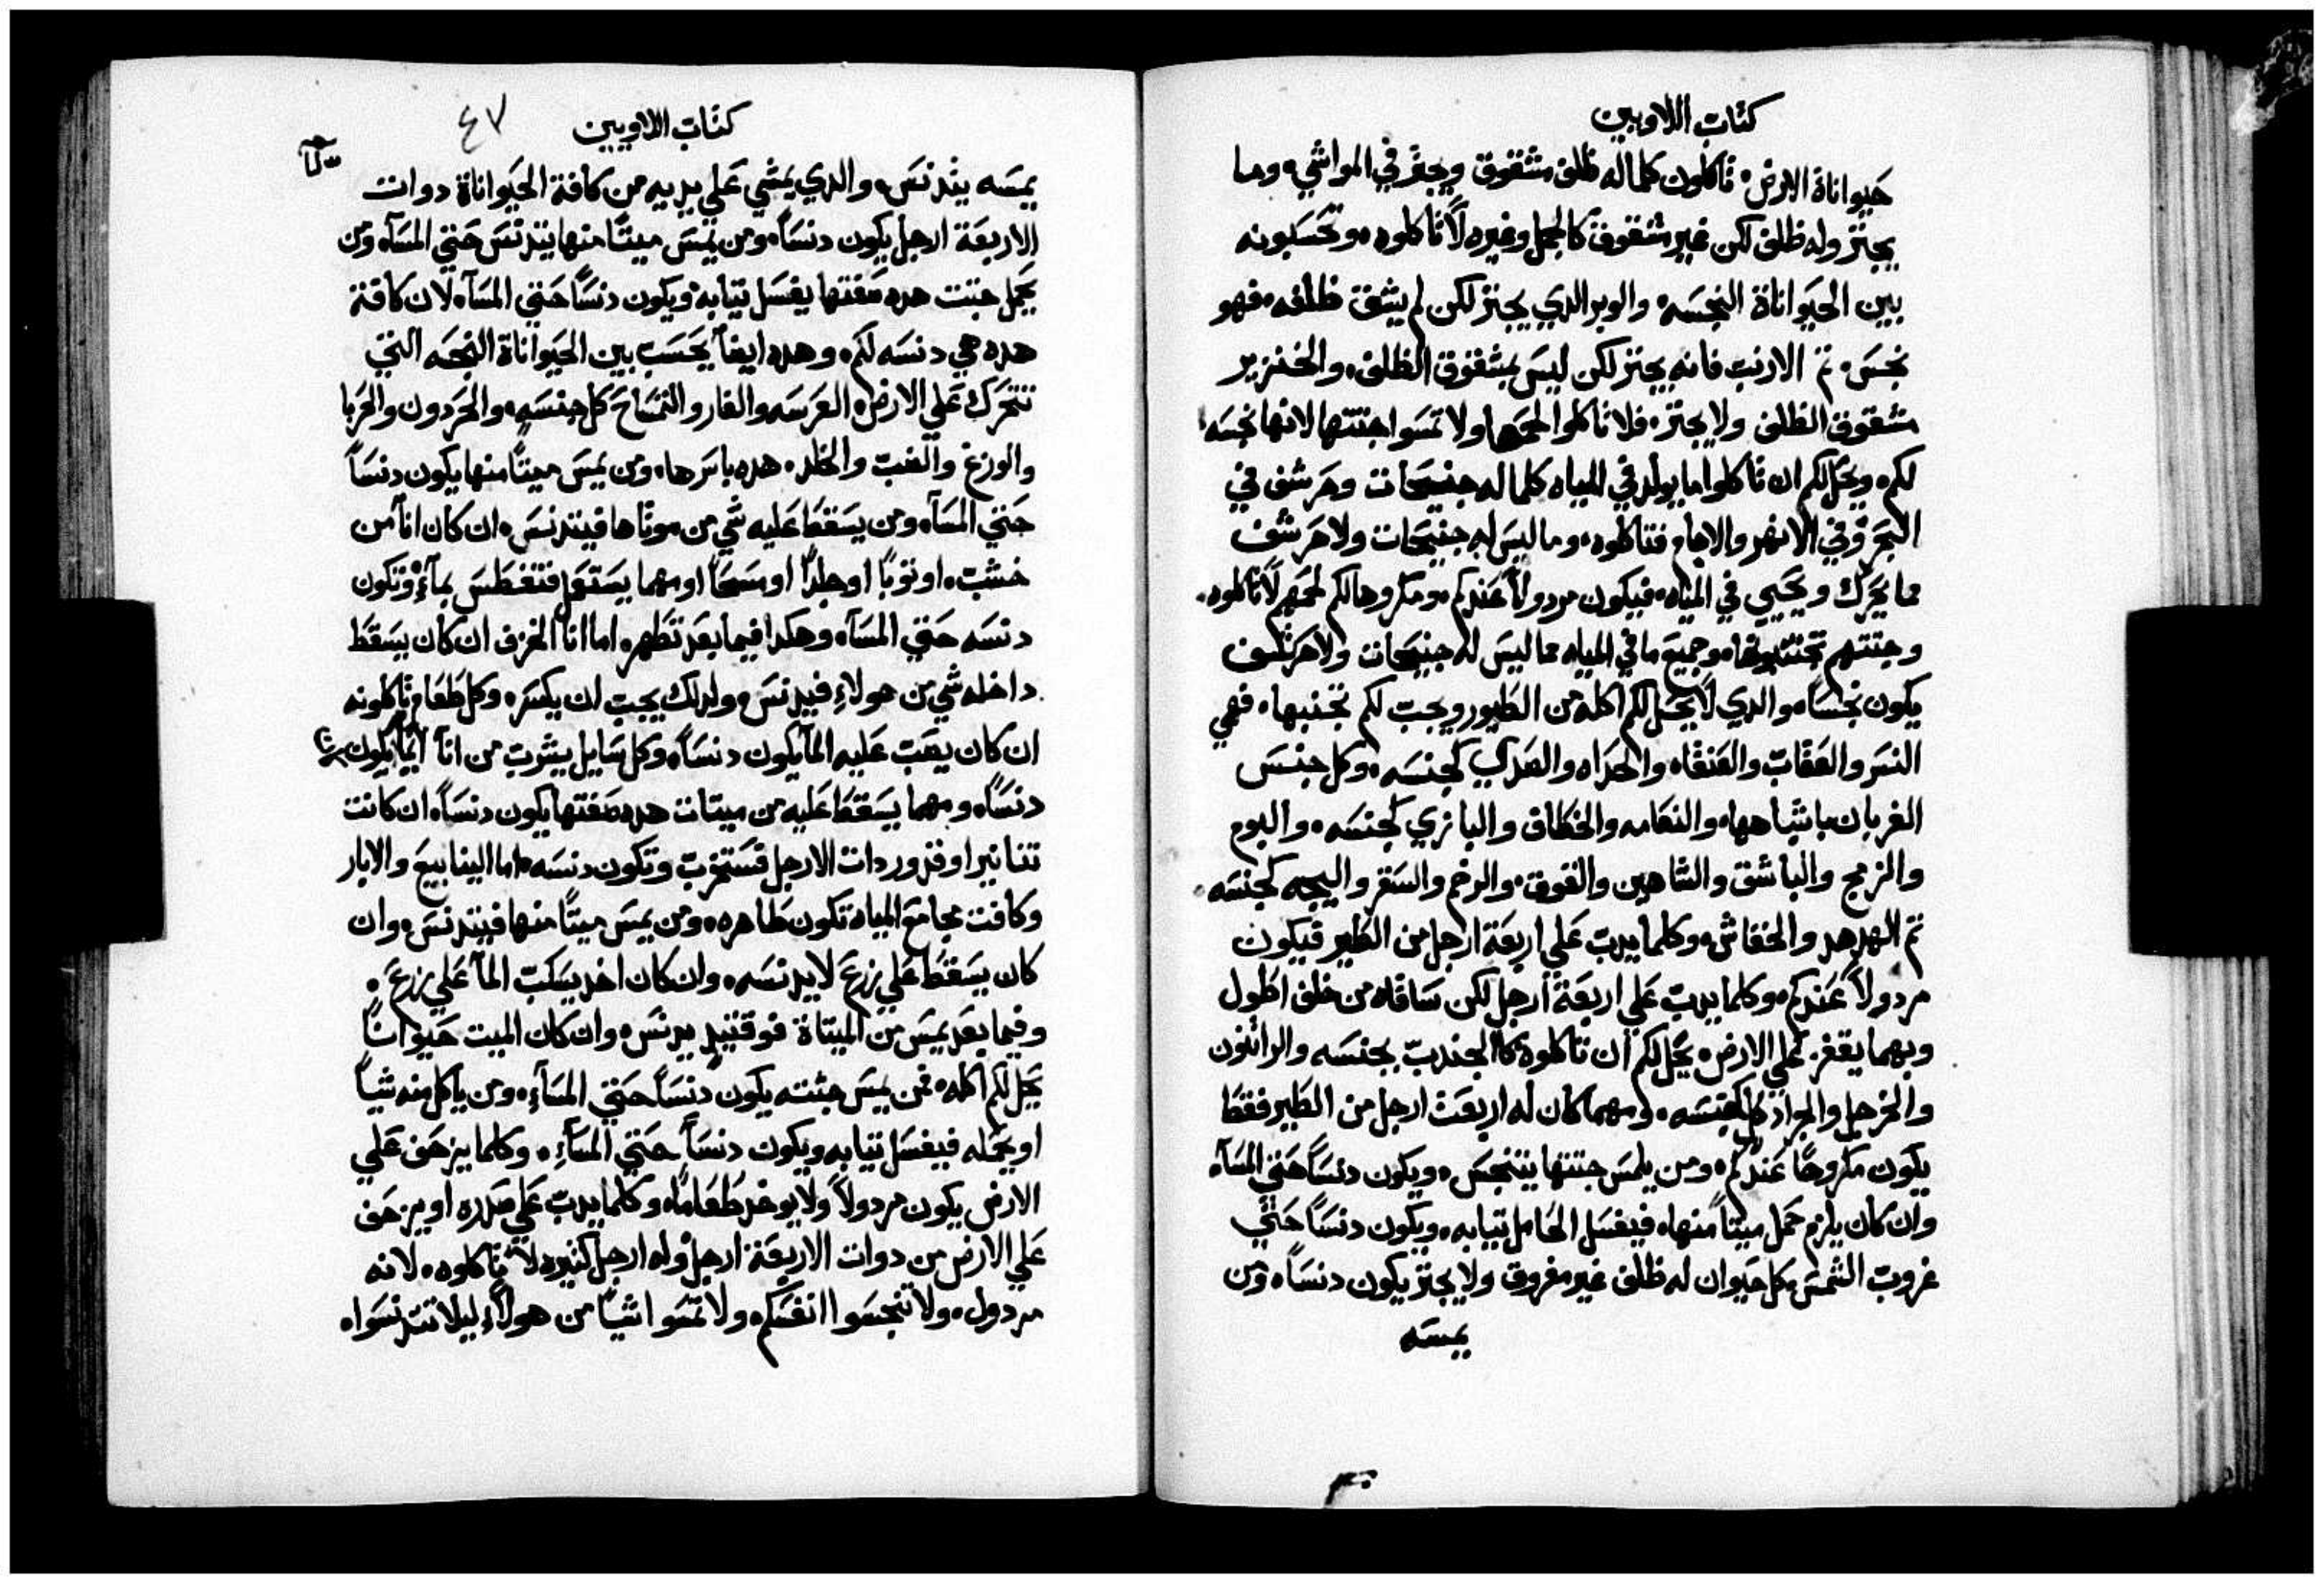 كتاب اللاويين
حيواناة الارض، تاكلون كلما له ظلف مشقوق ويجتر في المواشي، وما
يجتر وله ظلف لكن غير مشقوق كالجمل وغيره لا تاكلوه، وتحسبونه
بين الحيواناة النجسه، والوبر الدي يجتر لكن لم يشق ظلفه، فهو
نجس، تم الارنب فانه يجتر لكن ليس بمشقوق الظلف، والخنزير
مشقوق الظلف ولا يجتر، فلا تاكلوا لحمها ولا تمسوا جتتها لانها نجسه
لكم، ويحل لكم ان تاكلوا ما يولد في المياه كلما له جنيحات وحرشف في
البحر وفي الانهر والاجام فتاكلوه، وما ليس له جنيحات ولا حرشف
مما يتحرك ويحيي في المياه، فيكون مردولاً عندكم، ومكروها لكم لحمهم لا تاكلوه،
وجتتهم تجتنبونها، وجميع ما في المياه مما ليس له جنيحات ولا حرشف
يكون نجساً، والدي لا يحل لكم اكله من الطيور ويجب لكم تجنبها، فهي
النسر والعقاب والعنقاه والحداه والصدي كجنسه، وكل جنس
الغربان باشباهها، والنعامه والخطاف والبازي كجنسه، والبوم
والزمج والباشق والشاهين والقوق، والرخم والسقر والبجه كجنسه،
تم الهدهد والخفاش، وكلما يدب علي اربعة ارجل من الطير فيكون
مردولاً عندكم، وكلما يدب علي اربعة ارجل لكن ساقاه من خلف اطول
وبهما يقفز علي الارض، يحل لكم ان تاكلوه كالجندب بجنسه والراتون
والخرجل والجراد كل كجنسه، ومهما كان له اربعت ارجل من الطير فقط
يكون مكروهًا عندكم، ومن يلمس جتتها يتنجس، ويكون دنساً حتي المساه
وان كان يلزم حمل ميتاً منها، فيغسل الحامل تيابه، ويكون دنساً حتي
غروب الشمس، كل حيوان له ظلف غير مفروق ولا يجتر يكون دنساً، ومن
يمسه
كتاب اللاويين ٤٧
يمسه يتدنس، والدي يمشي علي يديه من كافة الحيواناة دوات
الاربعة ارجل يكون دنساً، ومن يمس ميتًا منها يتدنس حتي المسآء ومن
يحمل جتت هده صفتها يغسل تيابه ويكون دنسًا حتي المسآء لان كافة
هده هي دنسه لكم، وهده ايضاً يحسب بين الحيواناة النجسه التي
تتحرك علي الارض، العرسه والفار والتمساح كل جنسه، والحردون والحربا
والوزغ والضب والخلد، هده باسرها، ومن يمس ميتاً منها يكون دنساً
حتي المسآ، ومن يسقط عليه شي من موتاها فيتدنس، ان كان اناً من
خشب، او توبًا او جلداً او مسحاً او مهما يستعمل فتغطس بمآءٍ وتكون
دنسه حتي المسآ، وهكدا فيما بعد تطهر، اما انا الخزف ان كان يسقط
داخله شي من هولاءِ فيدنس، ولدلك يجب ان يكسر، وكل طعام تاكلونه
ان كان يصب عليه المآ يكون دنساً، وكل سايل يشرب من انآ ايما يكون
دنساً، ومهما يسقط عليه من ميتات هده صفتها يكون دنساً، ان كانت
تنانير او قدور دات الارجل فستخرب وتكون دنسه، اما الينابيع والابار
وكافت مجامع المياه تكون طاهره، ومن يمس ميتًا منها فيتدنس، وان
كان يسقط علي زرع لا يدنسه، وان كان احد يسكب المآ علي زرع،
وفيما بعد يمس من الميتاة فوقتيدٍ يدنس، وان كان الميت حيواناً
يحل لكم اكله، فمن يمس جتته يكون دنساً حتي المسآءِ، ومن ياكل منه شياً
او يحمله فيغسل تيابه ويكون دنساً حتي المسآءِ، وكلما يزحف علي
الارض يكون مردولاً ولا يوخد طعاماً، وكلما يدب علي صدره او يزحف
علي الارض من دوات الاربعة ارجل وله ارجل كتيره لا تاكلوه، لانه
مردول، ولا تنجسوا انفسكم، ولا تمسوا شياً من هولاءِ ليلا تتدنسوا،